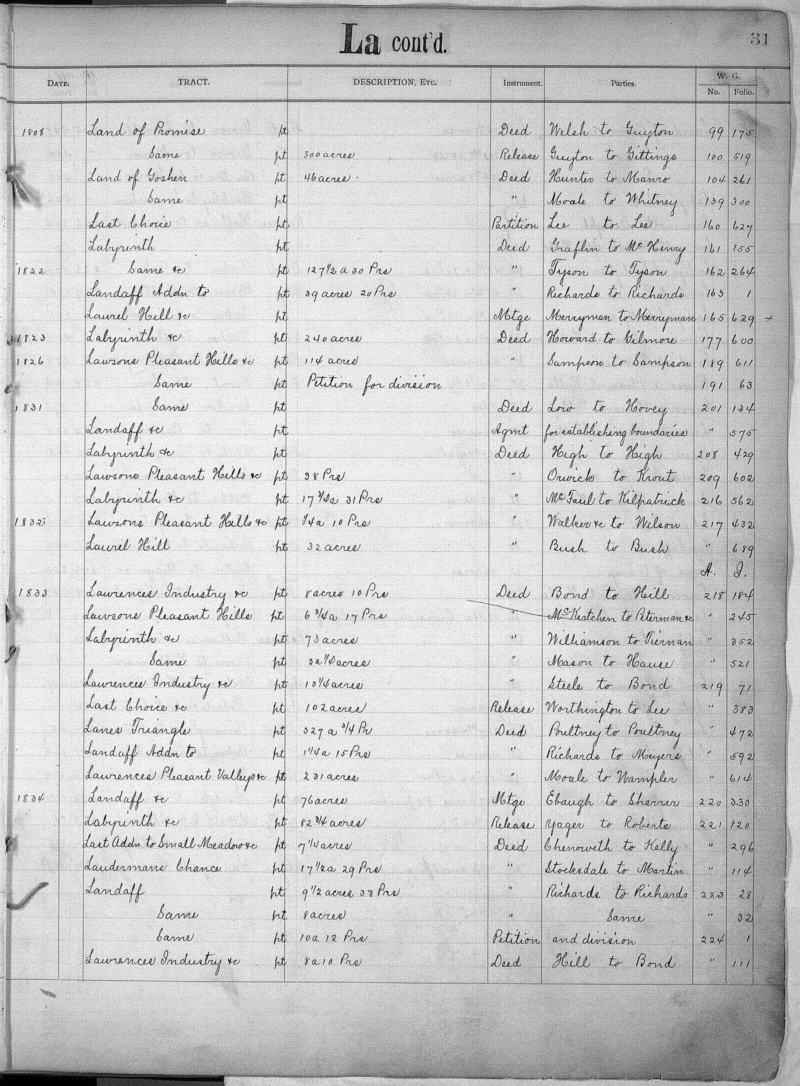 La cont'd.
31
DATE. TRACT. DESCRIPTION, ETC. Instrument. Parties. W. G.
No. Folio.
1808 Land of Promise pt Deed Welsh to Guyton 99 175
Same pt 300 acres Release Guyton to Gittings 100 519
Land of Goshen pt 46 acres Deed Hunter to Manro 104 261
Same pt " Moale to Whitney 139 300
Last Choice pt Partition Lee to Lee 160 627
Labyrinth pt Deed Graflin to McHenry 161 155
1822 Same &c pt 127 1/2 a 30 Prs " Tyson to Tyson 162 264
Landaff Addn to pt 39 acres 20 Prs " Richards to Richards 163 1
Laurel Hill &c pt Mtge Merryman to Merryman 165 629
1823 Labyrinth &c pt 240 acres Deed Howard to Gilmore 177 600
1826 Lawsons Pleasant Hills &c pt 114 acres " Sampson to Sampson 189 611
Same pt Petition for division 191 63
1831 Same pt Deed Low to Hovey 201 134
Landaff &c pt Agmt for establishing boundaries " 575
Labyrinth &c pt Deed High to High 208 429
Lawsons Pleasant Hills &c pt 38 Prs " Orwick to Krout 209 602
Labyrinth &c pt 17 3/4 a 31 Prs " McFaul to Kilpatrick 216 562
1832 Lawsons Pleasant Hills &c pt 1/4 a 10 Prs " Walker &c to Wilson 217 432
Laurel Hill pt 32 acres " Bush to Bush " 689
A. I.
1833 Lawrences Industry &c pt 8 acres 10 Prs Deed Bond to Hill 218 184
Lawsons Pleasant Hills pt 6 3/4 a 17 Prs " to Peterman &c " 245
Labyrinth &c pt 73 acres " Williamson to Tiernan " 352
Same pt acres " Mason to Hause " 521
Lawrences Industry &c pt acres " Steele to Bond 219 71
Last Choice &c pt 102 acres Release Worthington to Lee " 383
Lanes Triangle pt 327 a 3/4 Pr Deed Poultney to Poultney " 472
Landaff Addn to pt 1 1/4 a 15 Prs " Richards to Meyers " 592
Lawrences Pleasant Valleys &c pt 231 acres " Moale to Wampler " 614
1834 Landaff &c pt 76 acres Mtge Ebaugh to Sharrer 220 330
Labyrinth &c pt 82 3/4 acres Release Yager to Roberts 221 120
Last Addn to Small Meadow &c pt 7 1/4 acres Deed Chenoweth to Kelly " 296
Laudermans Chance pt 17 1/2 a 29 Prs " Stocksdale to Martin " 114
Landaff pt 9 1/2 acres 33 Prs " Richards to Richards 223 28
Same pt 8 acres " Same " 32
Same pt 10 a 12 Prs Petition and division 224 1
Lawrences Industry &c pt 8 a 10 Prs Deed Hill to Bond " 111